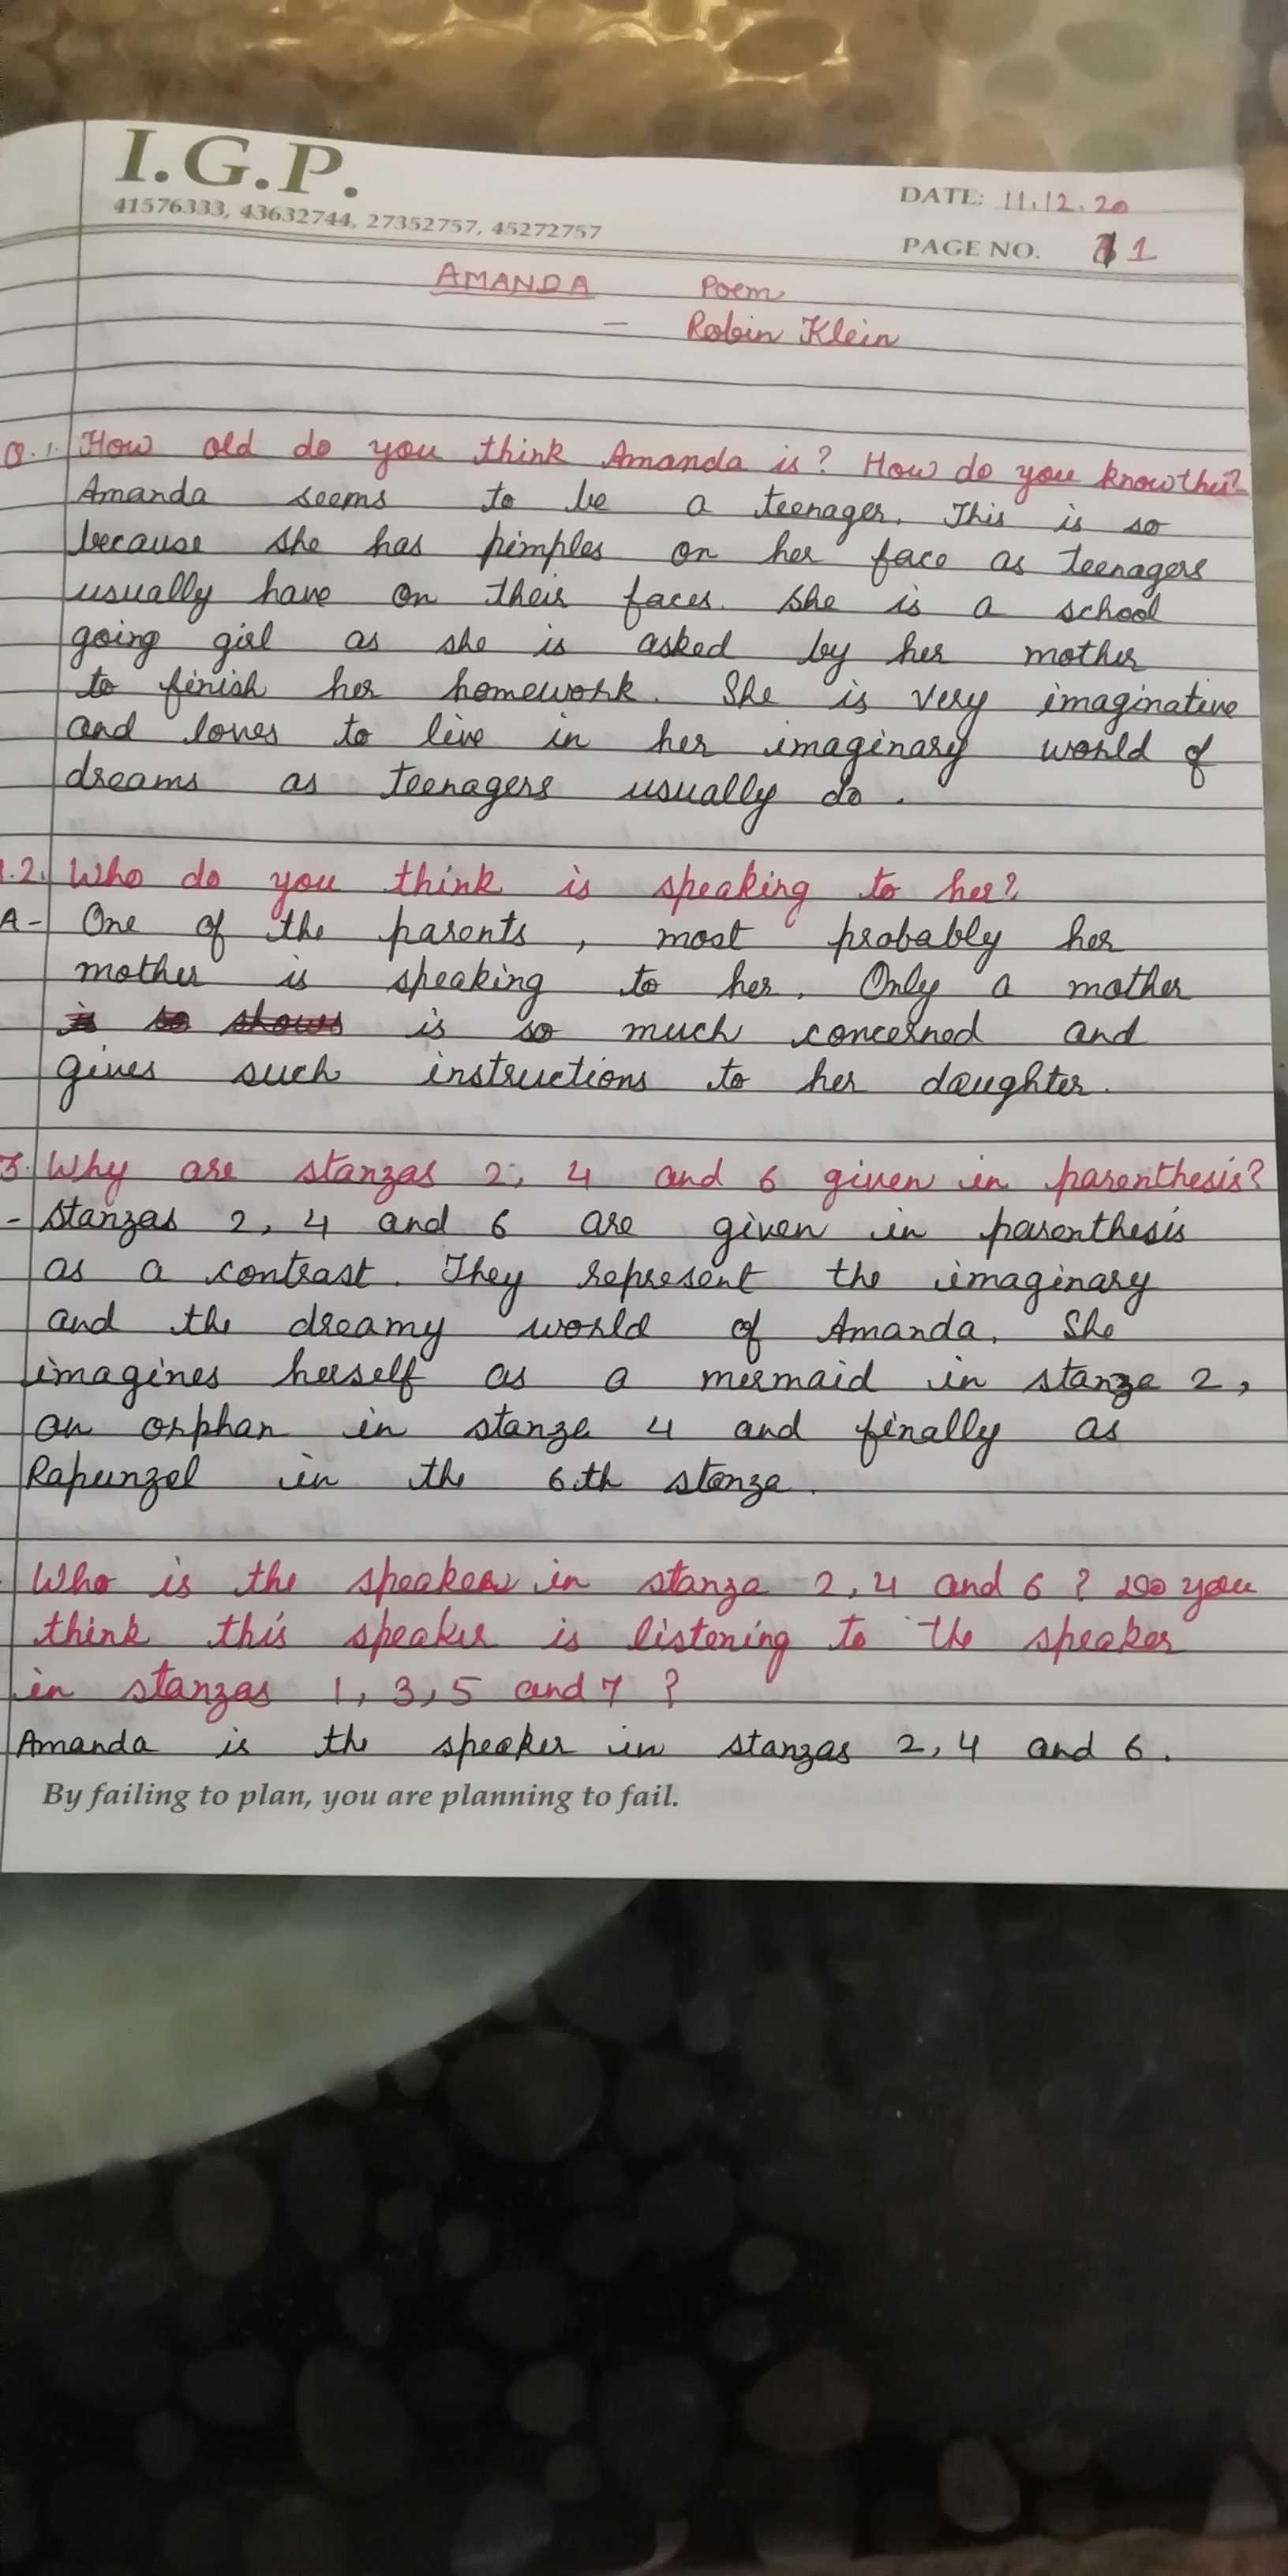 I.G.P.
41576333, 43632744, 27352757, 45272757
DATE: 11.12.20
PAGE NO. 1
AMANDA Poem
– Robin Klein
Q.1. How old do you think Amanda is? How do you know this?
Amanda seems to be a teenager. This is so
because she has pimples on her face as teenagers
usually have on their faces. She is a school
going girl as she is asked by her mother
to finish her homework. She is very imaginative
and loves to live in her imaginary world of
dreams as teenagers usually do.
.2. Who do you think is speaking to her?
A- One of the parents, most probably her
mother is speaking to her. Only a mother
is so shows is so much concerned and
gives such instructions to her daughter.
3. Why are stanzas 2, 4 and 6 given in parenthesis?
- Stanzas 2, 4 and 6 are given in parenthesis
as a contrast. They represent the imaginary
and the dreamy world of Amanda. She
imagines herself as a mermaid in stanza 2,
an orphan in stanza 4 and finally as
Rapunzel in the 6th stanza.
Who is the speaker in stanza 2, 4 and 6? Do you
think this speaker is listening to the speaker
in stanzas 1, 3, 5 and 7?
Amanda is the speaker in stanzas 2, 4 and 6.
By failing to plan, you are planning to fail.